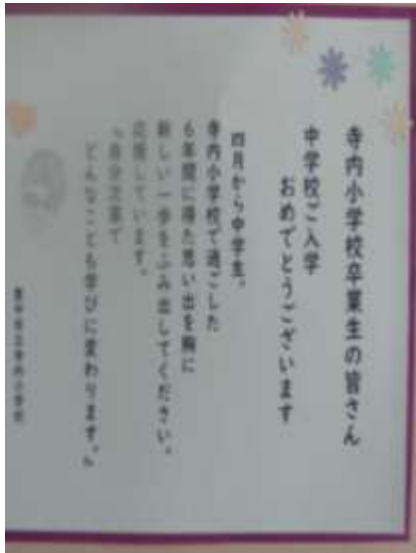 寺内小学校卒業生の皆さん
中学校ご入学
おめでとうございます
四月から中学生。
寺内小学校で過ごした
6年間に得た思い出を胸に
新しい一歩をふみ出してください。
応援しています。
「自分次第で
どんなことも学びに変わります。」
豊中市立寺内小学校